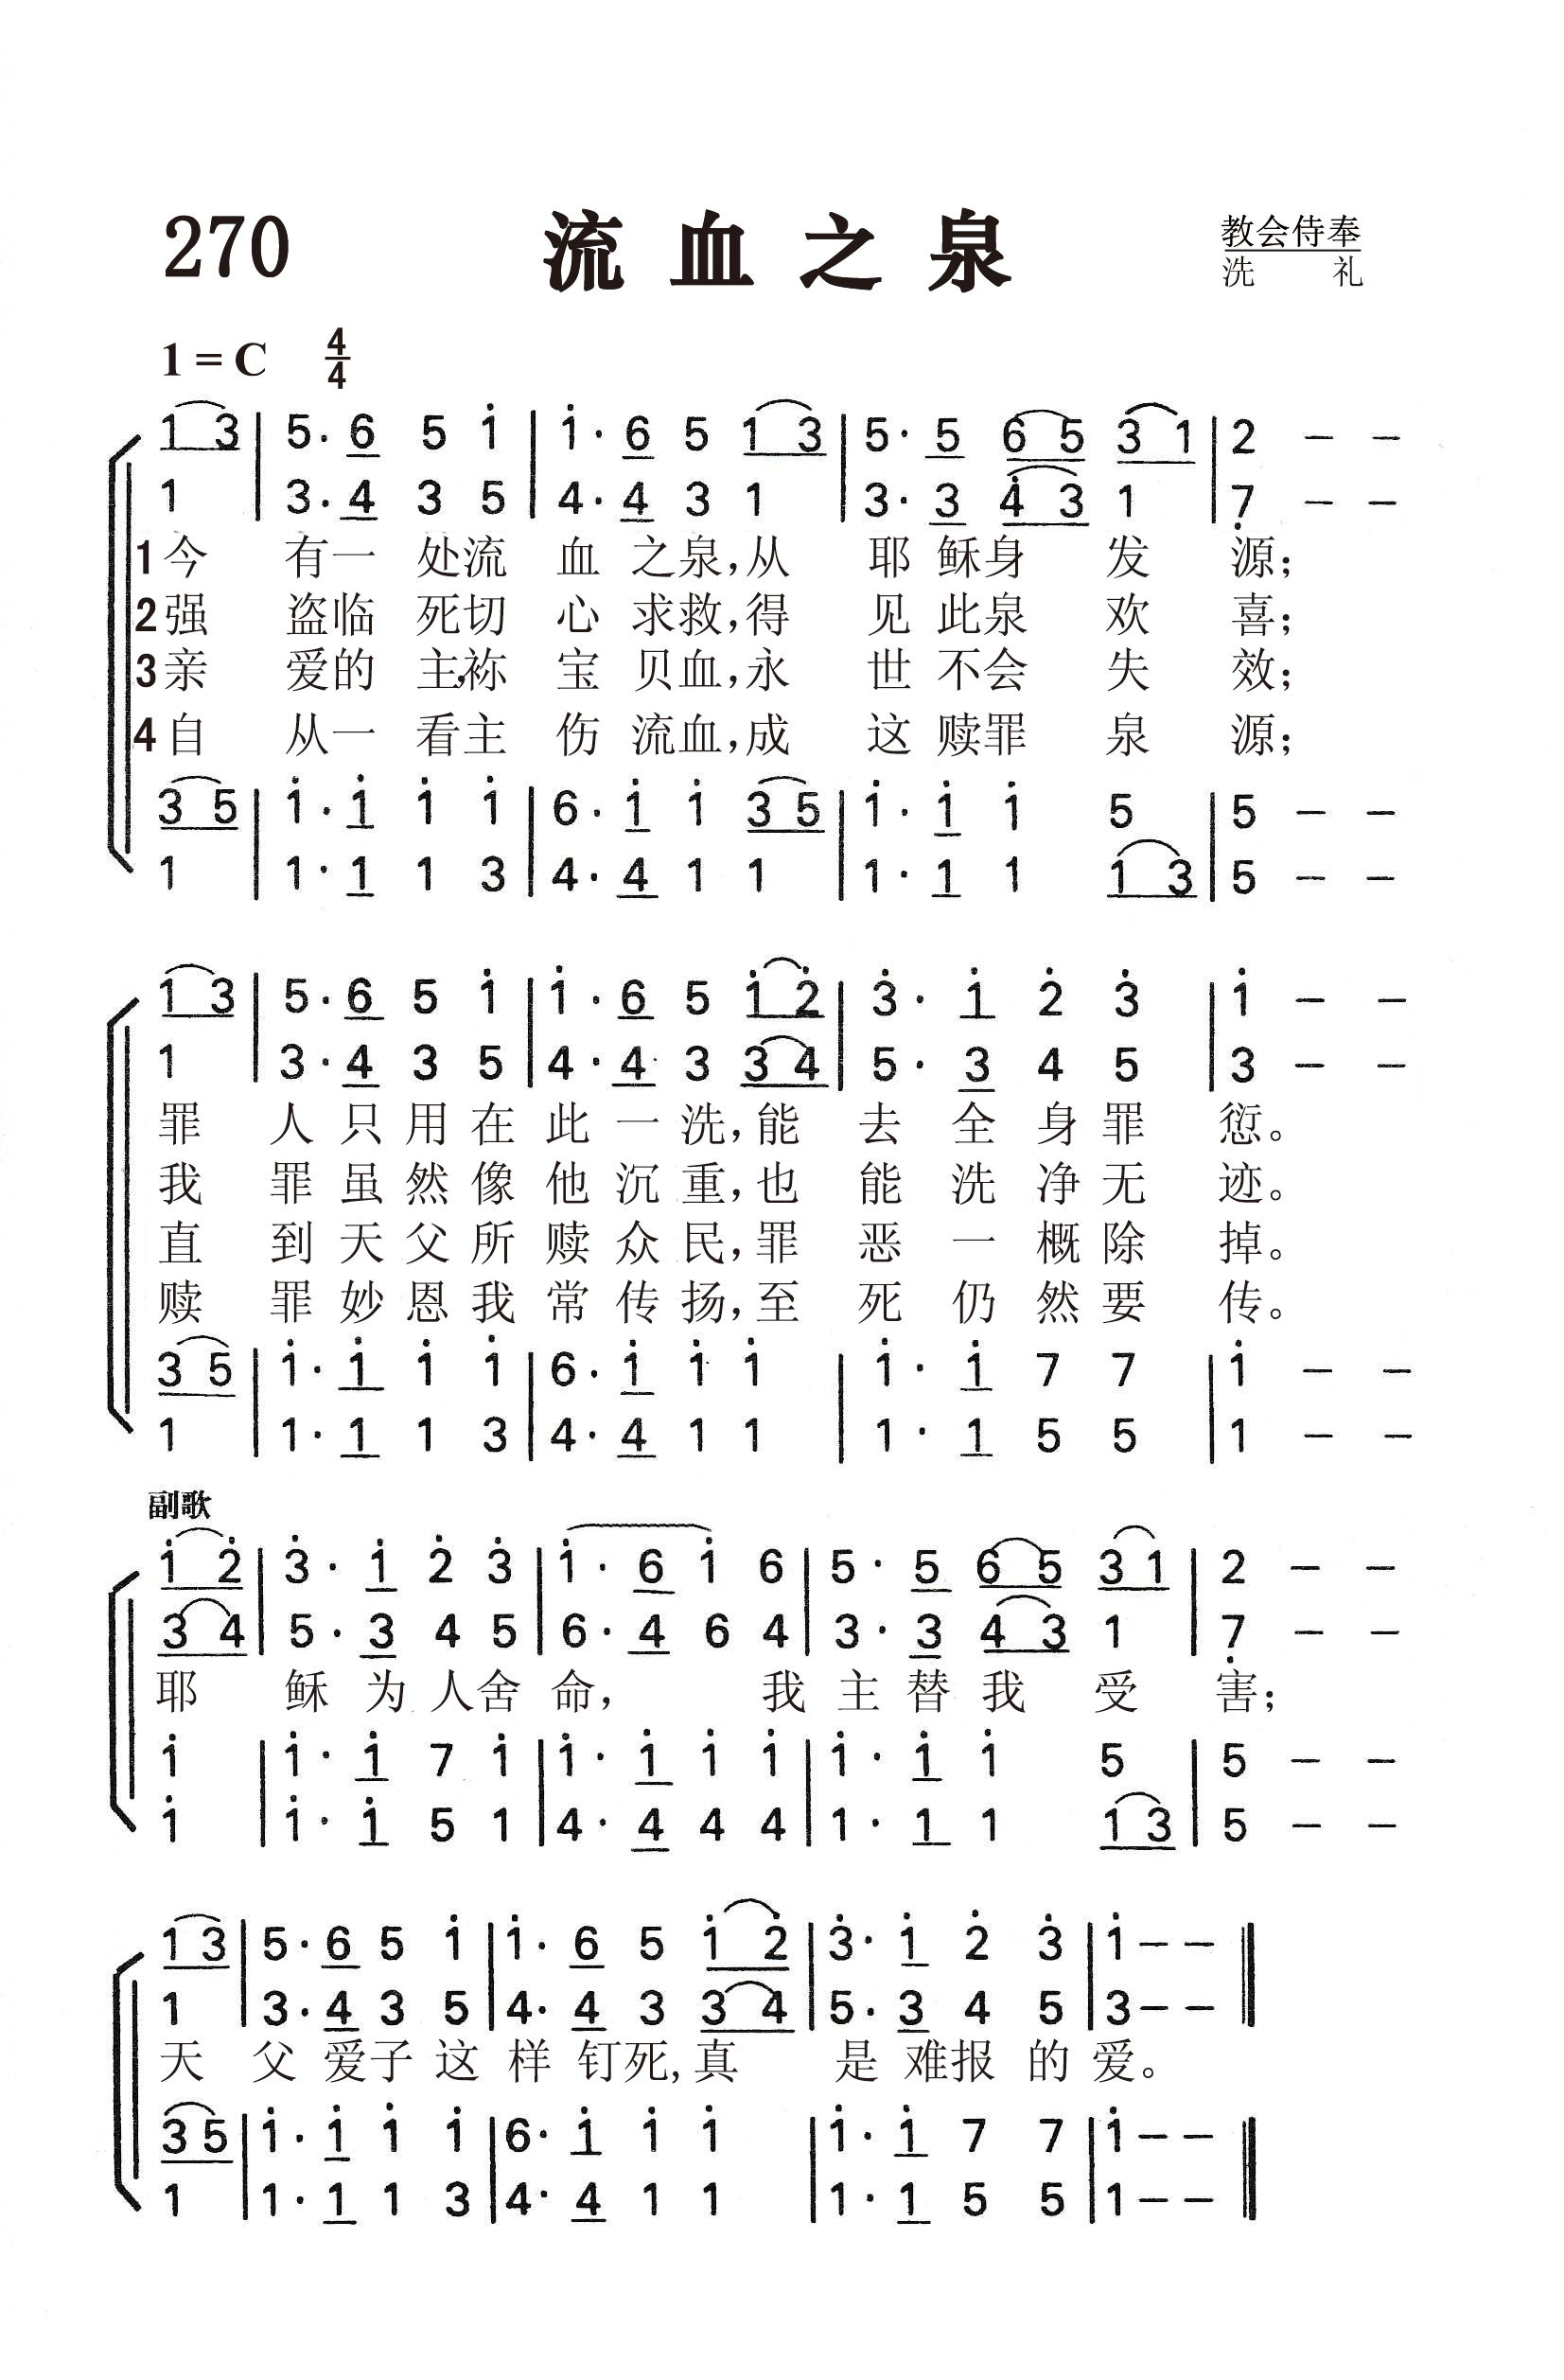 270 流血之泉 教会侍奉
洗 礼
1 = C 4/4
1 3 | 5. 6 5 i | i. 6 5 1 3 | 5. 5 6 5 3 1 | 2 - -
1 | 3. 4 3 5 | 4. 4 3 1 | 3. 3 4 3 1 | 7 - -
1今 有一 处流 血 之泉,从 耶 稣身 发 源;
2强 盗临 死切 心 求救,得 见 此泉 欢 喜;
3亲 爱的 主,袮 宝 贝血,永 世 不会 失 效;
4自 从一 看主 伤 流血,成 这 赎罪 泉 源;
3 5 | i. i i i | 6. i i 3 5 | i. i i 5 | 5 - -
1 | 1. 1 1 3 | 4. 4 1 1 | 1. 1 1 1 3 | 5 - -
1 3 | 5. 6 5 i | i. 6 5 i 2 | 3. i 2 3 | i - -
1 | 3. 4 3 5 | 4. 4 3 3 4 | 5. 3 4 5 | 3 - -
罪 人 只 用 在 此 一 洗,能 去 全 身 罪 愆。
我 罪 虽 然 像 他 沉 重,也 能 洗 净 无 迹。
直 到 天 父 所 赎 众 民,罪 恶 一 概 除 掉。
赎 罪 妙 恩 我 常 传 扬,至 死 仍 然 要 传。
3 5 | i. i i i | 6. i i i | i. i 7 7 | i - -
1 | 1. 1 1 3 | 4. 4 1 1 | 1. 1 5 5 | 1 - -
副歌
i 2 | 3. i 2 3 | i. 6 i 6 | 5. 5 6 5 3 1 | 2 - -
3 4 | 5. 3 4 5 | 6. 4 6 4 | 3. 3 4 3 1 | 7 - -
耶 稣 为 人舍 命, 我 主 替 我 受 害;
i | i. i 7 i | i. i i i | i. i i 5 | 5 - -
i | i. i 5 1 | 4. 4 4 4 | 1. 1 1 1 3 | 5 - -
1 3 | 5. 6 5 i | i. 6 5 i 2 | 3. i 2 3 | i - -
1 | 3. 4 3 5 | 4. 4 3 3 4 | 5. 3 4 5 | 3 - -
天 父 爱子 这 样 钉死,真 是 难报 的 爱。
3 5 | i. i i i | 6. i i i | i. i 7 7 | i - -
1 | 1. 1 1 3 | 4. 4 1 1 | 1. 1 5 5 | 1 - -